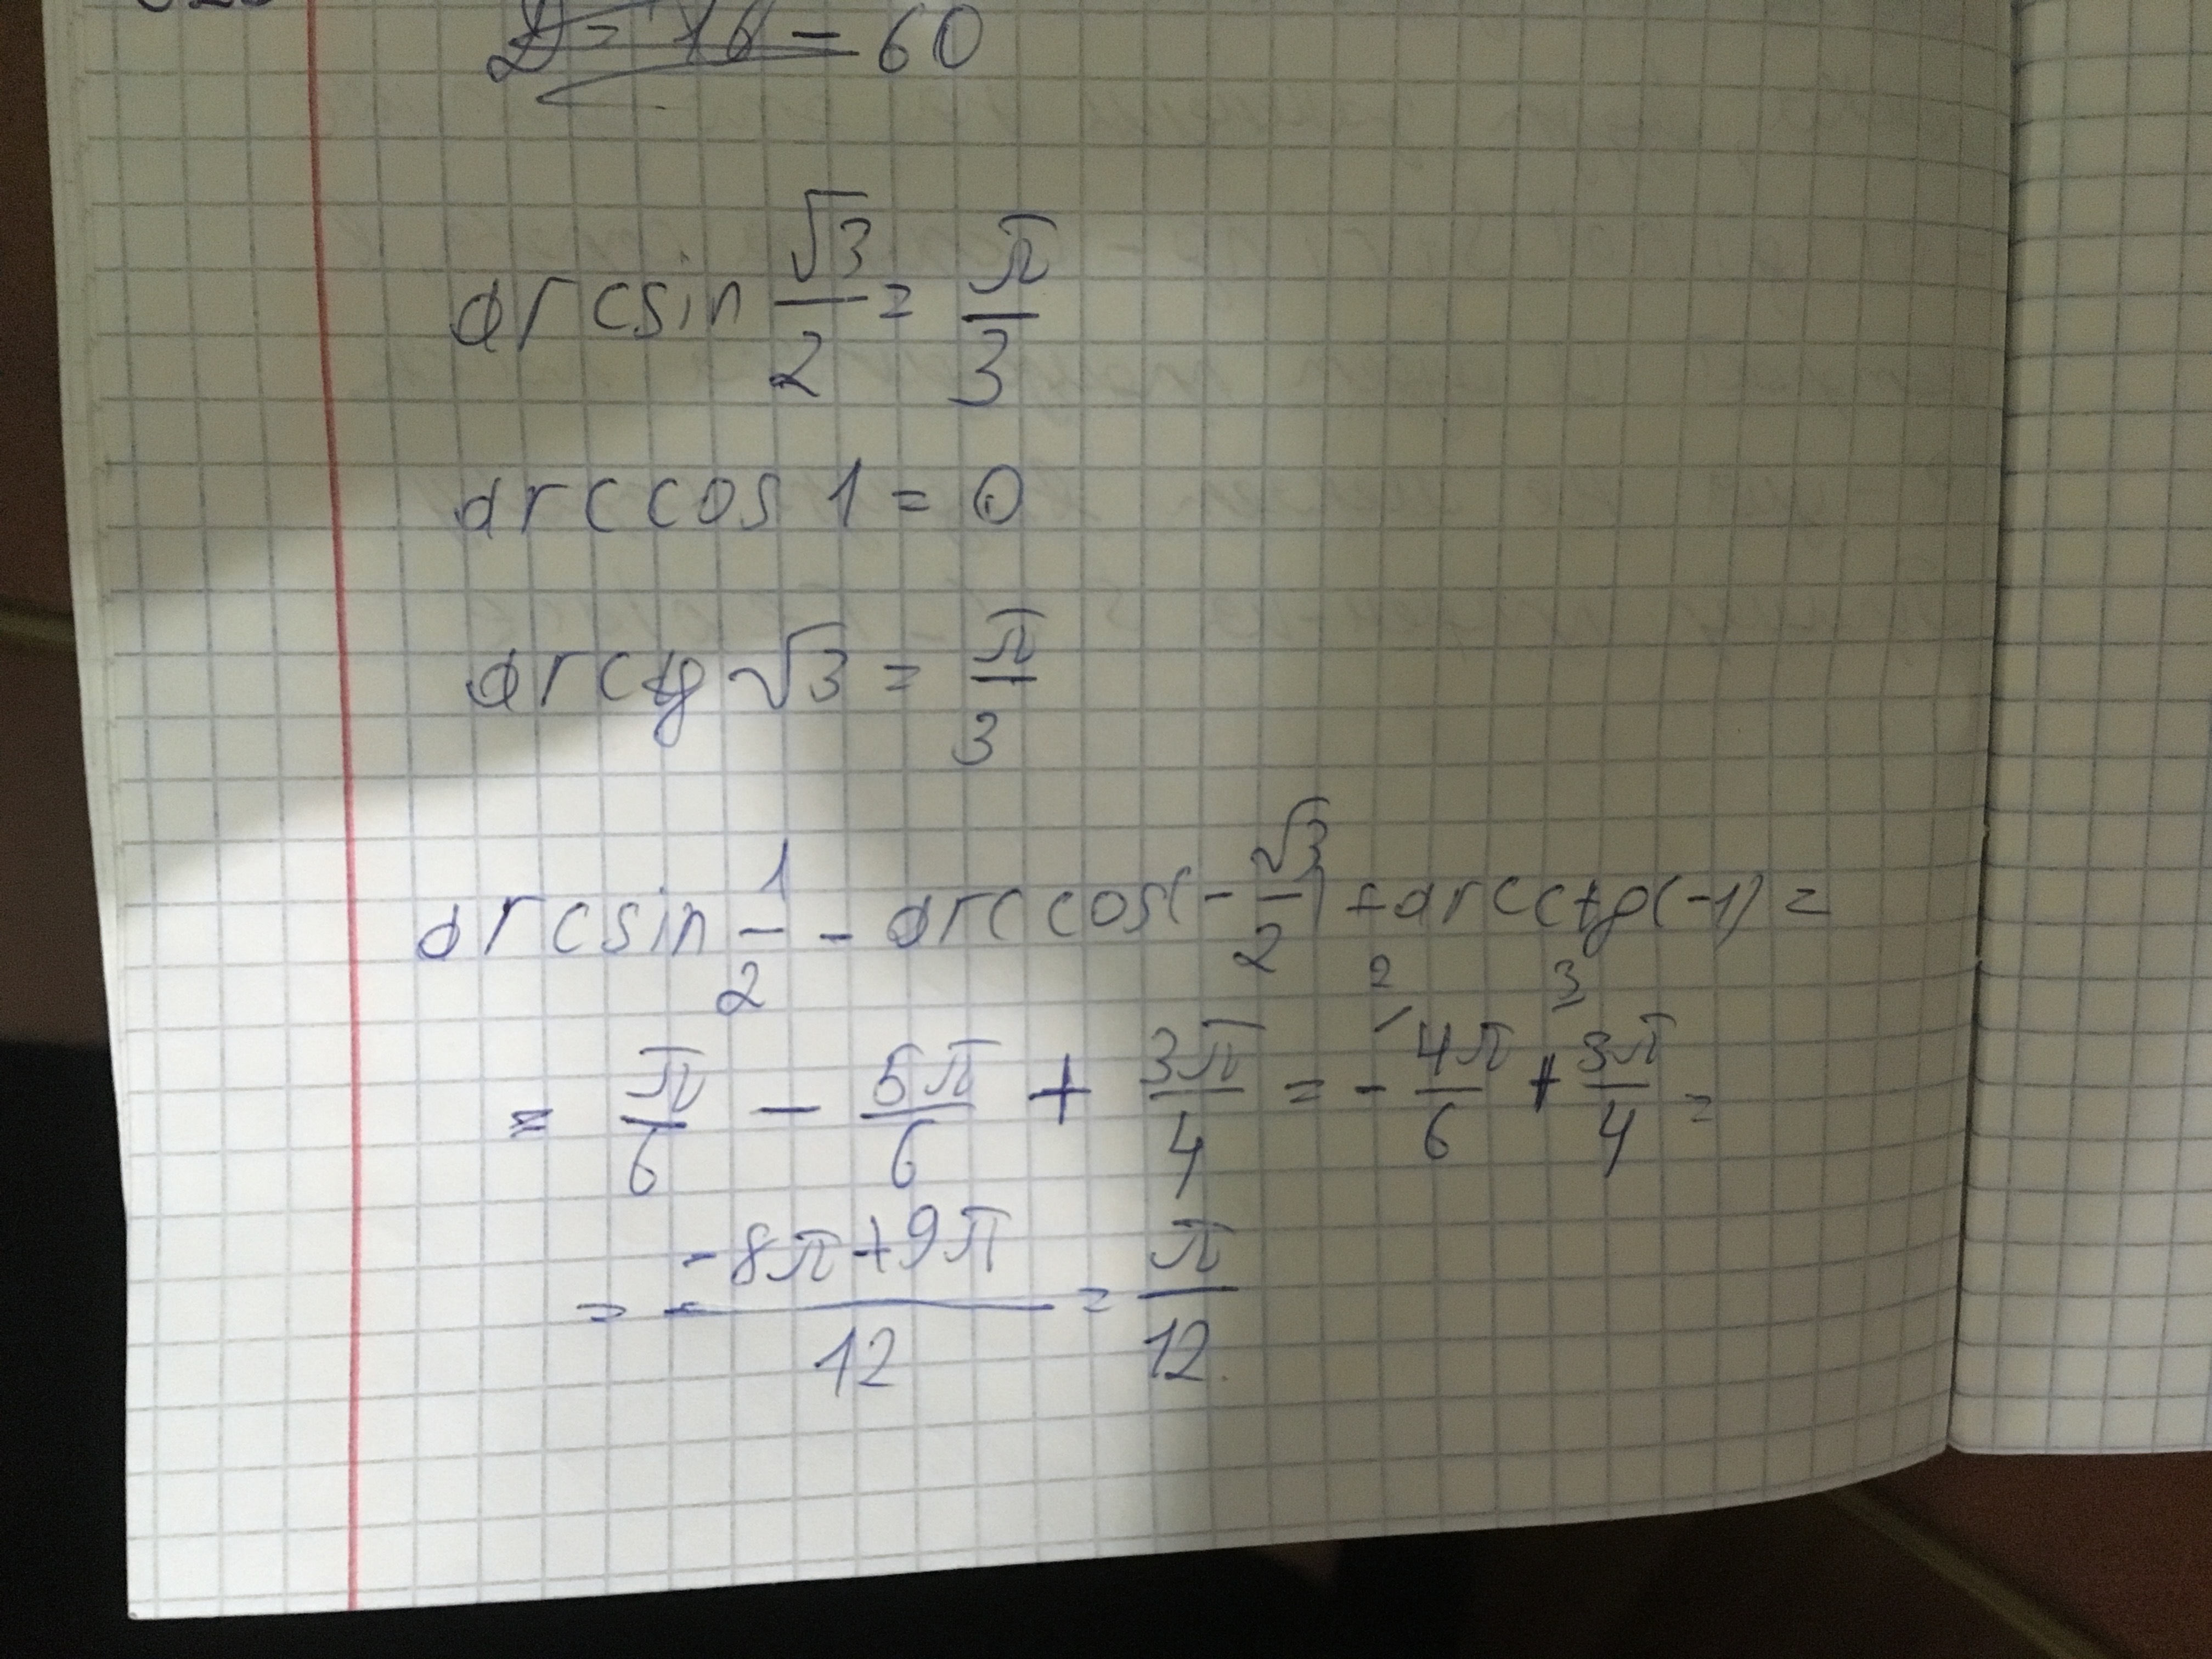 D = 16 - 60
arcsin √3/2 = π/3
arccos 1 = 0
arctg √3 = π/3
arcsin 1/2 - arccos(-√3/2) + arcctg(-1) =
2 3
= π/6 - 5π/6 + 3π/4 = - 4π/6 + 3π/4 =
= -8π+9π/12 = π/12